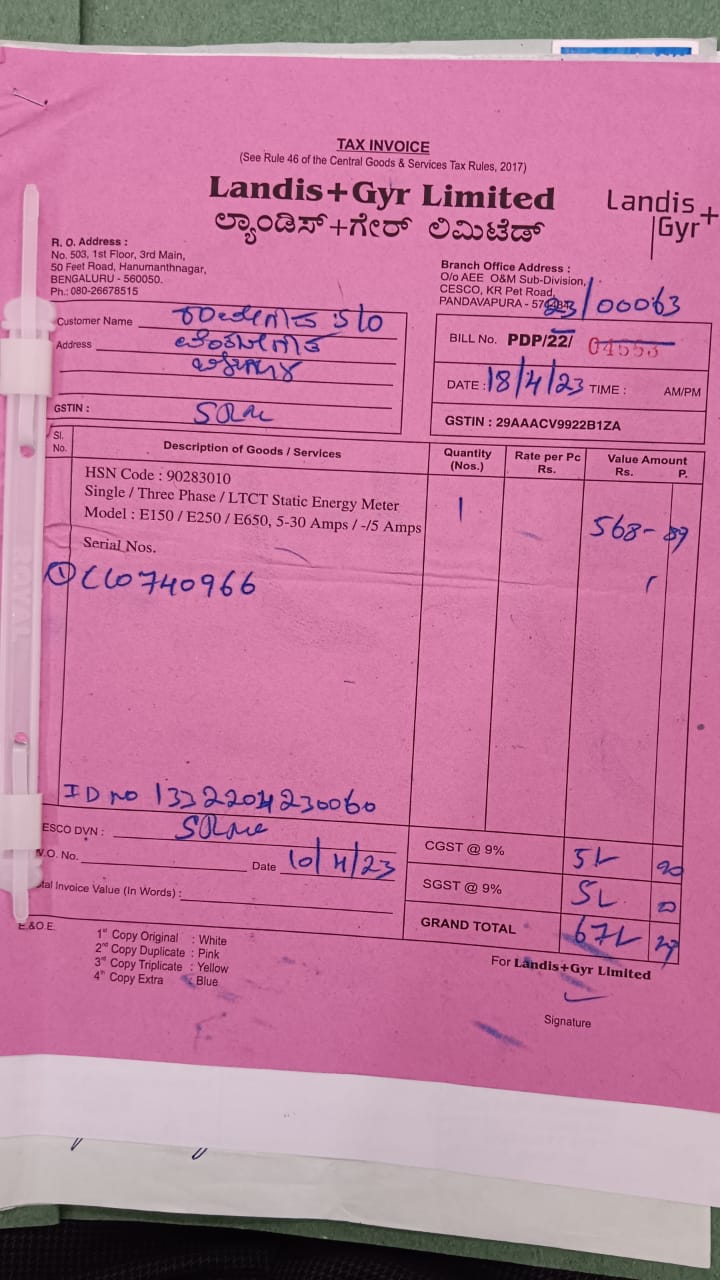 TAX INVOICE
(See Rule 46 of the Central Goods & Services Tax Rules, 2017)
Landis+Gyr Limited
ಲ್ಯಾಂಡಿಸ್+ಗೇರ್ ಲಿಮಿಟೆಡ್
Landis+
Gyr
R. O. Address :
No. 503, 1st Floor, 3rd Main,
50 Feet Road, Hanumanthnagar,
BENGALURU - 560050.
Ph.: 080-26678515
Branch Office Address :
O/o AEE O&M Sub-Division,
CESCO, KR Pet Road,
PANDAVAPURA -
23/00063
Customer Name S/o
Address
GSTIN :
BILL No. PDP/22/ 04553
DATE : 18/4/23 TIME : AM/PM
GSTIN : 29AAACV9922B1ZA
Sl. No. Description of Goods / Services Quantity (Nos.) Rate per Pc Rs. Value Amount Rs. P.
HSN Code : 90283010
Single / Three Phase / LTCT Static Energy Meter 1 568-89
Model : E150 / E250 / E650, 5-30 Amps / -/5 Amps
Serial Nos.
① 0740966
ID NO
ESCO DVN :
V.O. No. Date 10/4/23
tal Invoice Value (In Words) :
CGST @ 9% 20
SGST @ 9% 20
GRAND TOTAL
E.&O.E.
1st Copy Original : White
2nd Copy Duplicate : Pink
3rd Copy Triplicate : Yellow
4th Copy Extra : Blue
For Landis+Gyr Limited
Signature